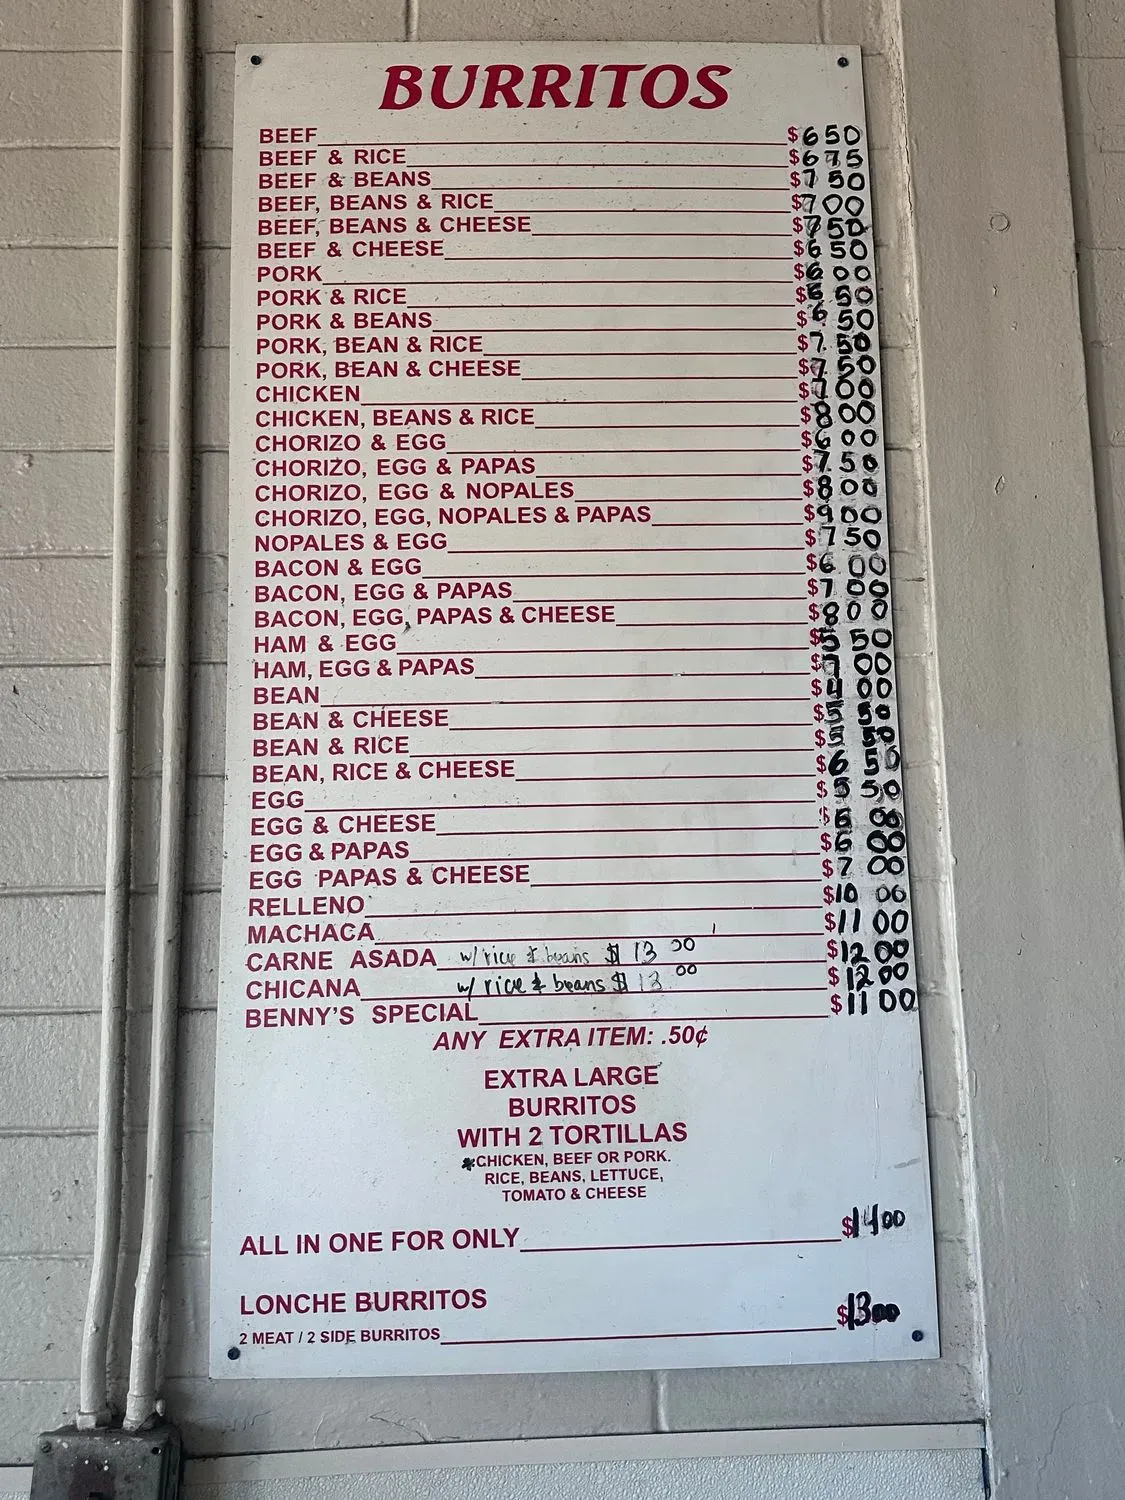 BURRITOS
BEEF $6 50
BEEF & RICE $6 75
BEEF & BEANS $7 50
BEEF, BEANS & RICE $7 00
BEEF, BEANS & CHEESE $7 50
BEEF & CHEESE $6 50
PORK $6 00
PORK & RICE $ 50
PORK & BEANS $6 50
PORK, BEAN & RICE $7. 50
PORK, BEAN & CHEESE $7 50
CHICKEN $7 00
CHICKEN, BEANS & RICE $8 00
CHORIZO & EGG $6 00
CHORIZO, EGG & PAPAS $7 50
CHORIZO, EGG & NOPALES $8 00
CHORIZO, EGG, NOPALES & PAPAS $9 00
NOPALES & EGG $7 50
BACON & EGG $6 00
BACON, EGG & PAPAS $7 00
BACON, EGG, PAPAS & CHEESE $8 00
HAM & EGG $5 50
HAM, EGG & PAPAS $7 00
BEAN $4 00
BEAN & CHEESE $5 50
BEAN & RICE $5 50
BEAN, RICE & CHEESE $6 50
EGG $5 50
EGG & CHEESE $ 00
EGG & PAPAS $6 00
EGG PAPAS & CHEESE $7 00
RELLENO $10 00
MACHACA $11 00
CARNE ASADA w/ rice & beans $13 00 $12 00
CHICANA w/ rice & beans $13 00 $12 00
BENNY'S SPECIAL $11 00
ANY EXTRA ITEM: .50¢
EXTRA LARGE
BURRITOS
WITH 2 TORTILLAS
*CHICKEN, BEEF OR PORK.
RICE, BEANS, LETTUCE,
TOMATO & CHEESE
ALL IN ONE FOR ONLY $14 00
LONCHE BURRITOS
2 MEAT / 2 SIDE BURRITOS $13 00